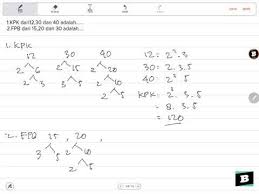 1.KPK dari12,30 dan 40 adalah.....
2.FPB dari 15,20 dan 30 adalah....
1. KPK
12 30 40
2 6 2 15 2 20
2 3 3 5 2 10
2 5
12 = 2². 3
30 = 2. 3. 5
40 = 2³. 5
KPK = 2³. 3. 5
= 8. 3. 5
= 120
2. FPB 15, 20,
3 5 2 10
2 5
B
B